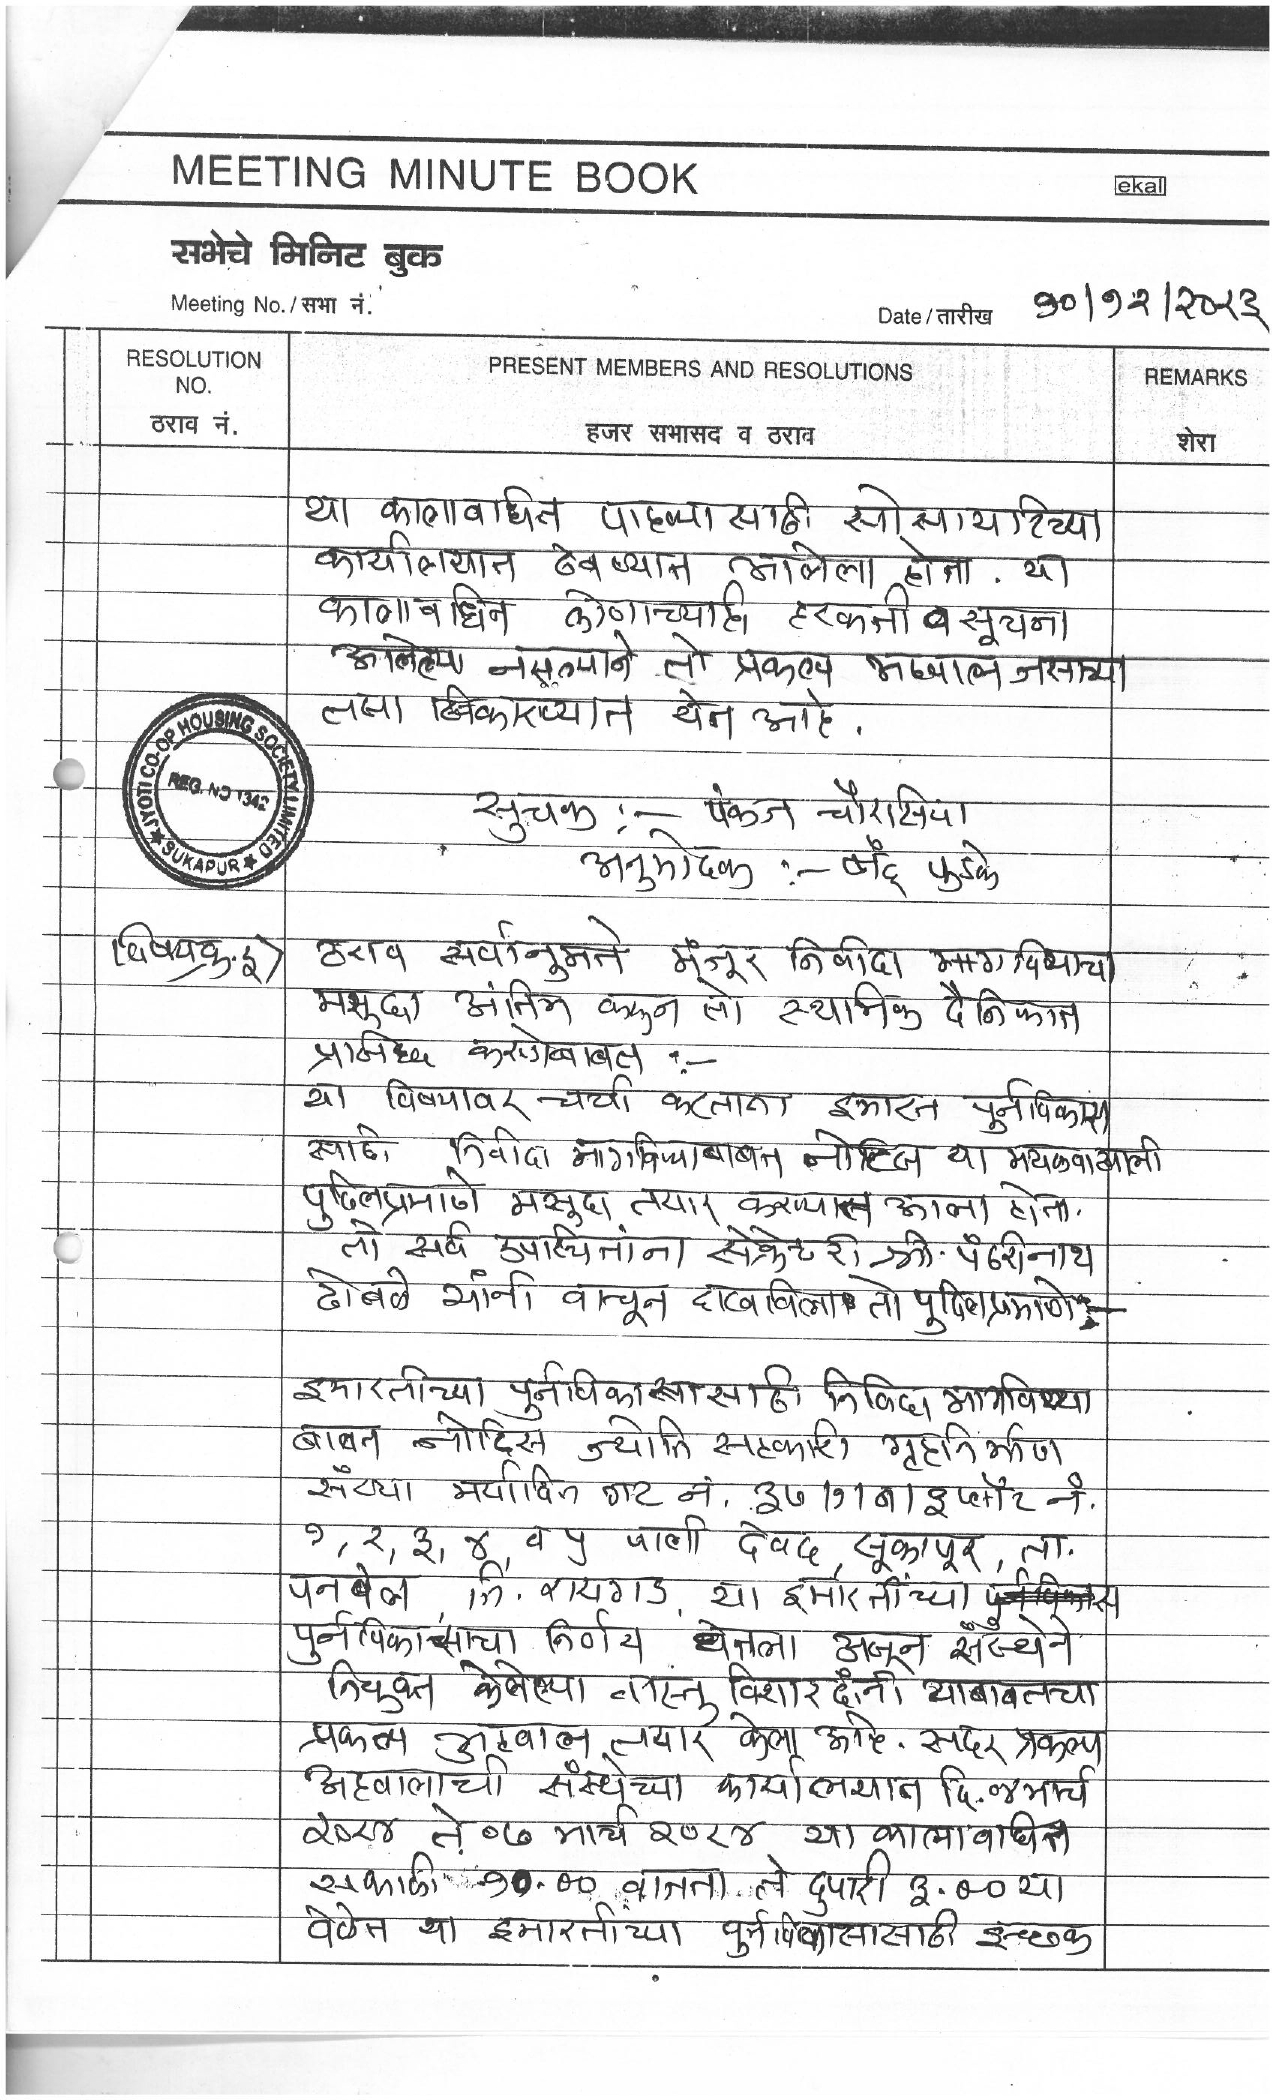 MEETING MINUTE BOOK
ekal
सभेचे मिनिट बुक
Meeting No. / सभा नं.
Date / तारीख १०/१२/२०२३
RESOLUTION NO. ठराव नं.
PRESENT MEMBERS AND RESOLUTIONS हजर सभासद व ठराव
REMARKS शेरा
या कालावधित पाहण्यासाठी सोसायटिच्या
कार्यालयात ठेवण्यात आलेला होता. या
कालावधित कोणाच्याही हरकती व सूचना
आलेल्या नसल्याने तो प्रकल्प अहवाल जसाच्या
तसा स्विकारण्यात येत आहे.
JYOTI CO-OP HOUSING SOCIETY LIMITED
REG. NO 1342
★ SUKAPUR ★
सुचक :- पंकज चौरासिया
अनुमोदक :- फुडके
(विषय क्र. ३) ठराव सर्वानुमते मंजूर निवीदा मागविण्याचा
मसुदा अंतिम करून तो स्थानिक दैनिकात
प्रसिध्द करणेबाबत :-
या विषयावर चर्चा करताना इमारत पुर्नविकास
साठी निवीदा मागविण्याबाबत नोटिस या मथळ्याखाली
पुढिलप्रमाणे मसुदा तयार करण्यात आला होता.
तो सर्व उपस्थितांना सेक्रेटरी श्री. पंढरीनाथ
ढोबळे यांनी वाचून दाखविला तो पुढिलप्रमाणे :-
इमारतीच्या पुर्नविकासासाठी निविदा मागविण्या
बाबत नोटिस ज्योति सहकारी गृहनिर्माण
संस्था मर्यादित गट नं. ३७/१ब/३ प्लॉट नं.
१, २, ३, ४, व ५ पाली देवद, सूकापूर, ता.
पनवेल, जि. रायगड, या इमारतींच्या पुर्नविकास
पुर्नविकासाचा निर्णय घेतला असून संस्थेने
नियुक्त केलेल्या वास्तु विशारदांनी याबाबतचा
प्रकल्प अहवाल तयार केला आहे. सदर प्रकल्प
अहवालाची संस्थेच्या कार्यालयात दि. ०४ मार्च
२०२४ ते ०७ मार्च २०२४ या कालावधित
सकाळी १०.०० वाजता ते दुपारी ३.०० या
वेळेत या इमारतीच्या पुर्नविकासासाठी इच्छुक